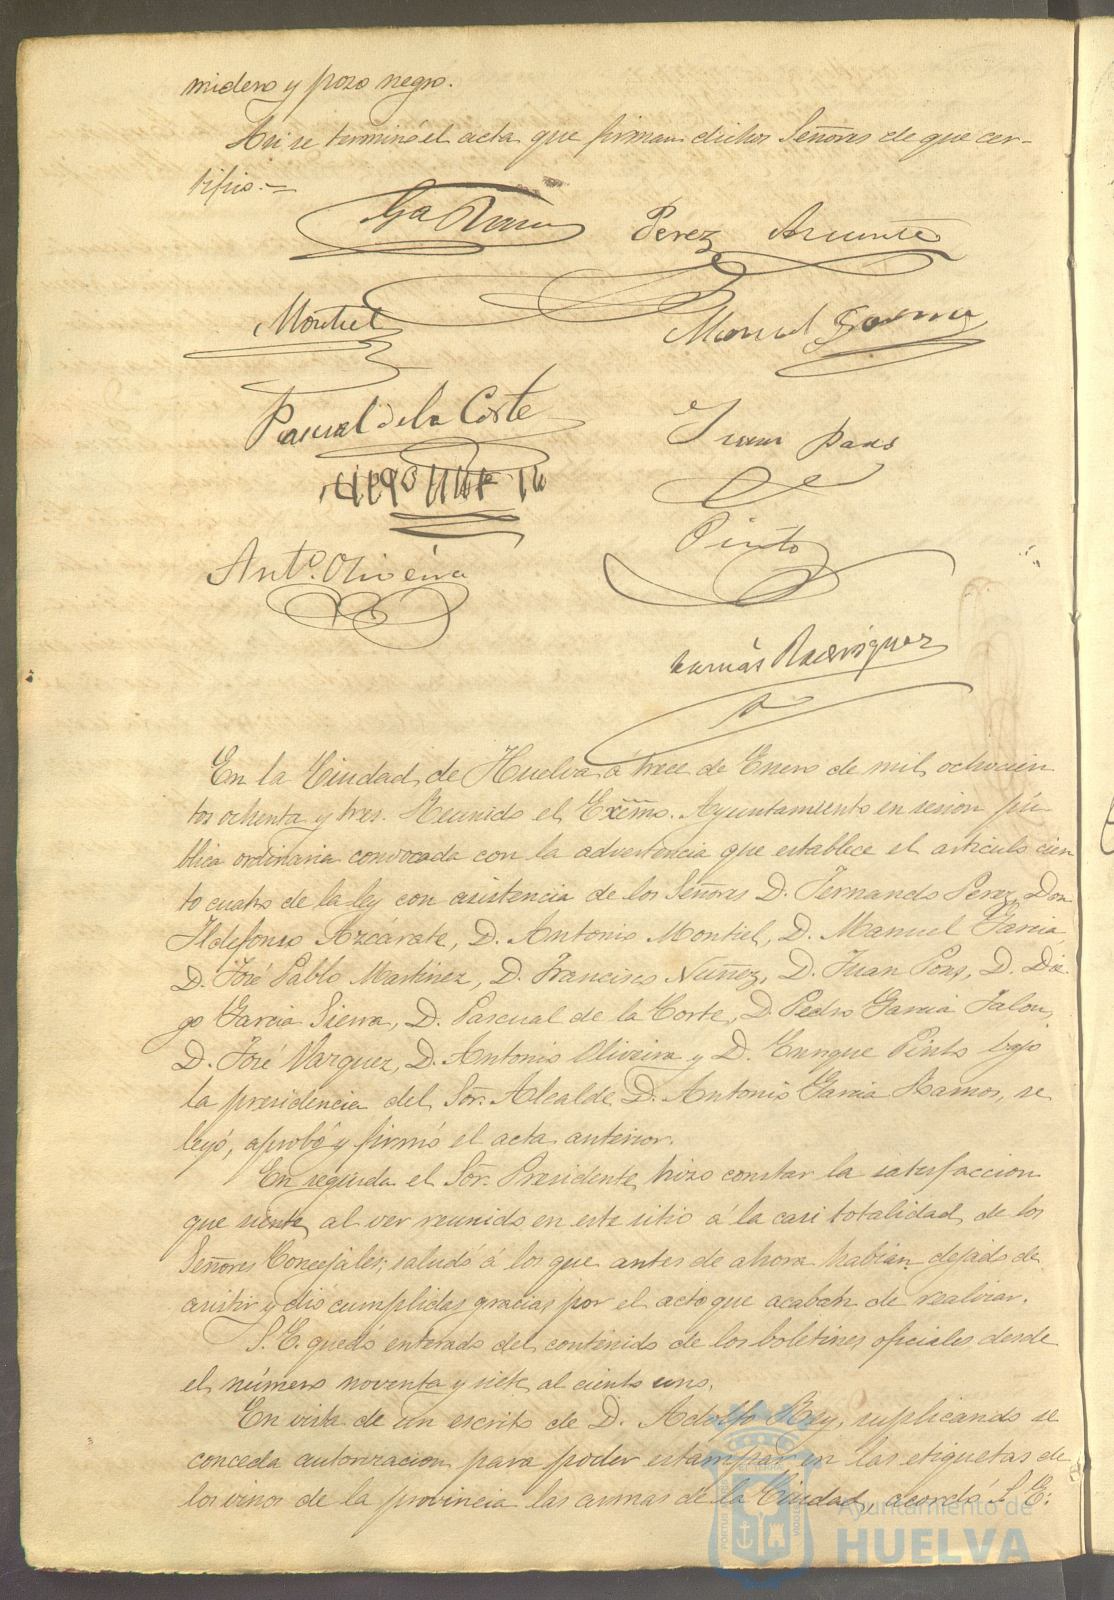 midero y pozo negro.
Asi se terminó el acta que firman dichos Señores de que cer-
tifico.=
Gª Ramos Perez Azcarate
Montiel Manuel Garcia
Pascual de la Corte Juan Pons
Antº. Oliveira Pinto
Tomás Rodriguez
En la Ciudad de Huelva á trece de Enero de mil ochocien
tos ochenta y tres. Reunido el Excmo. Ayuntamiento en sesion pú-
blica ordinaria convocada con la advertencia que establece el articulo cien
to cuatro de la ley con asistencia de los Señores D. Fernando Perez, Don
Ildefonso Azcárate, D. Antonio Montiel, D. Manuel Garcia,
D. José Pablo Martinez, D. Francisco Nuñez, D. Juan Pons, D. Die-
go Garcia Sierra, D. Pascual de la Corte, D. Pedro Garcia Jalon,
D. José Vazquez, D. Antonio Oliveira y D. Enrique Pinto bajo
la presidencia del Sor. Alcalde D. Antonio Garcia Ramos, se
leyó, aprobó y firmó el acta anterior.
En seguida el Sor. Presidente hizo constar la satisfaccion
que siente al ver reunido en este sitio á la casi totalidad de los
Señores Concejales; saludó á los que antes de ahora habian dejado de
asistir y dió cumplidas gracias por el acto que acaban de realizar.
S. E. quedó enterado del contenido de los boletines oficiales desde
el número noventa y siete al ciento uno.
En vista de un escrito de D. Adolfo Rey, suplicando se
conceda autorizacion para poder estampar en las etiquetas de
los vinos de la provincia las armas de la Ciudad, acordó S. E:
Ayuntamiento de
HUELVA